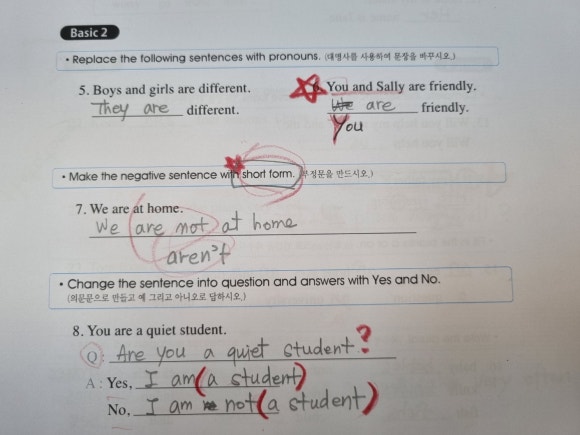 Basic 2
• Replace the following sentences with pronouns. (대명사를 사용하여 문장을 바꾸시오.)
5. Boys and girls are different.
They are different.
6. You and Sally are friendly.
We are friendly.
You
• Make the negative sentence with short form. (부정문을 만드시오.)
7. We are at home.
We are not at home
aren't
• Change the sentence into question and answers with Yes and No.
(의문문으로 만들고 예 그리고 아니오로 답하시오.)
8. You are a quiet student.
Q: Are you a quiet student?
A : Yes, I am (a student)
No, I am not (a student)